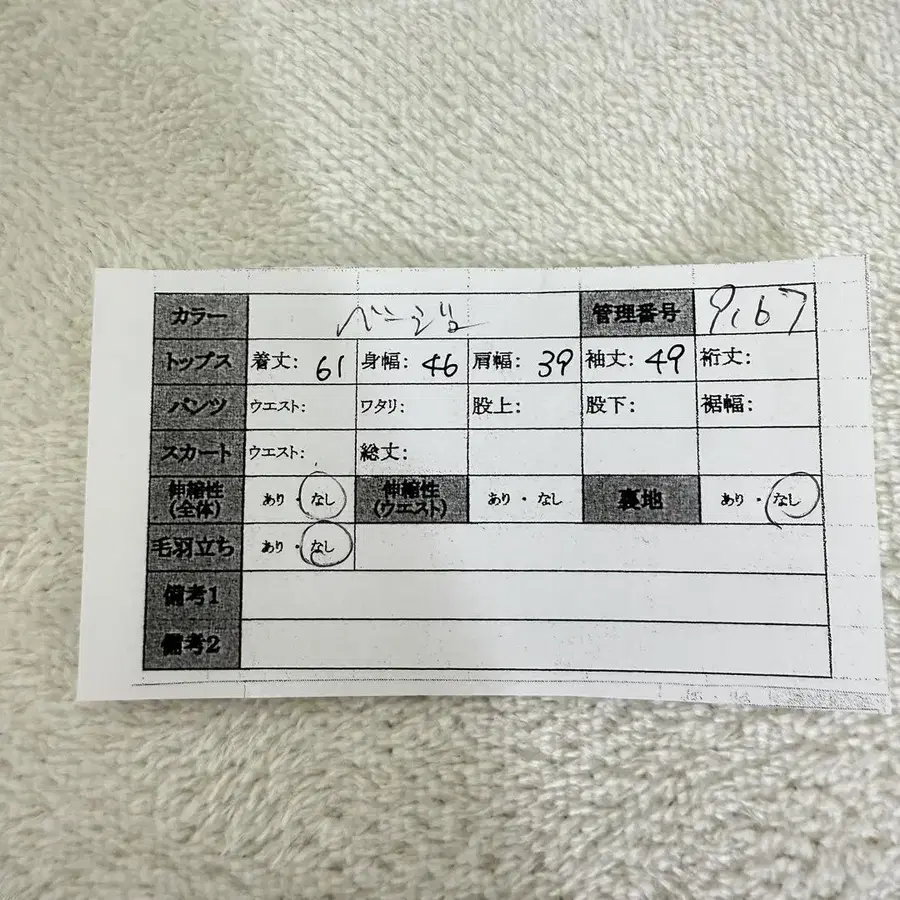 カラー ベージュ 管理番号 9167
トップス 着丈: 61 身幅: 46 肩幅: 39 袖丈: 49 裄丈:
パンツ ウエスト: ワタリ: 股上: 股下: 裾幅:
スカート ウエスト: 総丈:
伸縮性(全体) あり・なし 伸縮性(ウエスト) あり・なし 裏地 あり・なし
毛羽立ち あり・なし
備考1
備考2